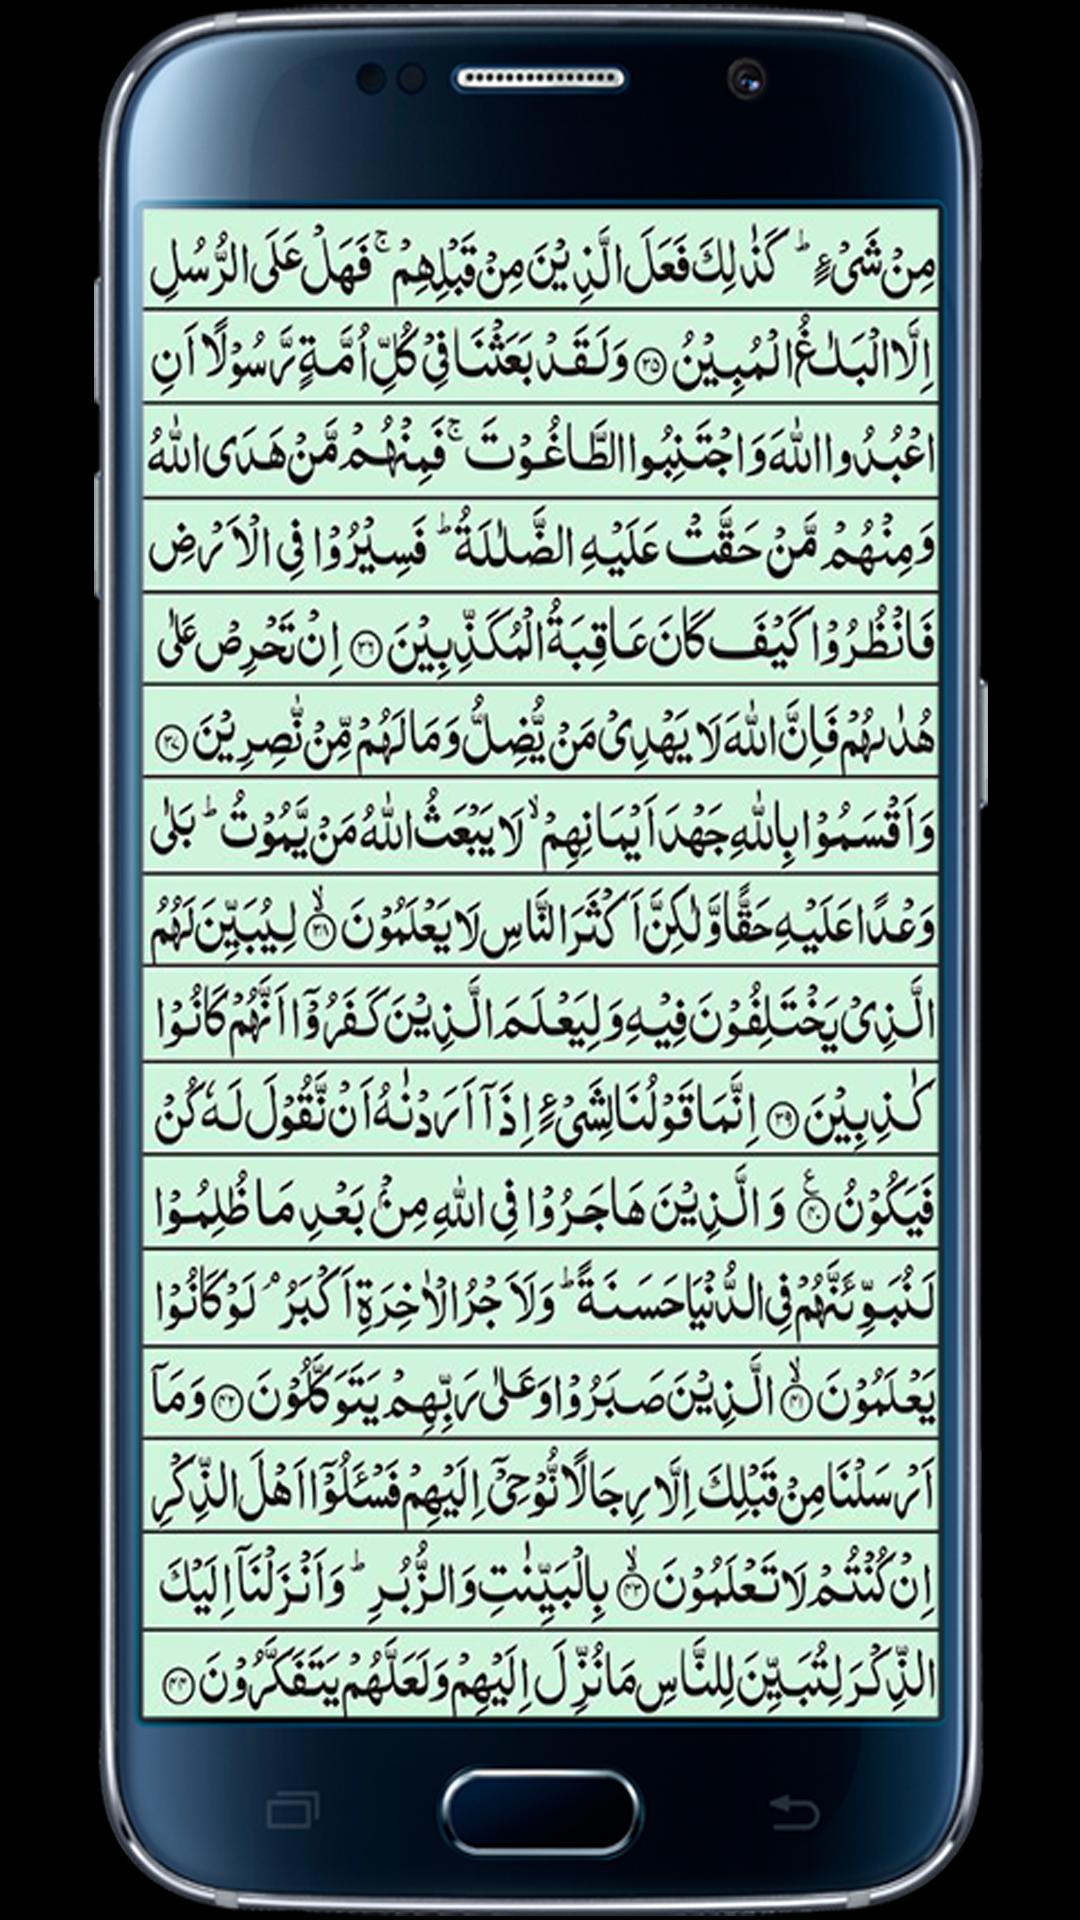 مِنْ شَیْءٍ ؕ كَذٰلِكَ فَعَلَ الَّذِیْنَ مِنْ قَبْلِهِمْ ۚ فَهَلْ عَلَی الرُّسُلِ
اِلَّا الْبَلٰغُ الْمُبِیْنُ ﴿۳۵﴾ وَلَقَدْ بَعَثْنَا فِیْ كُلِّ اُمَّةٍ رَّسُوْلًا اَنِ
اعْبُدُوا اللّٰهَ وَاجْتَنِبُوا الطَّاغُوْتَ ۚ فَمِنْهُمْ مَّنْ هَدَی اللّٰهُ
وَمِنْهُمْ مَّنْ حَقَّتْ عَلَیْهِ الضَّلٰلَةُ ؕ فَسِیْرُوْا فِی الْاَرْضِ
فَانْظُرُوْا كَیْفَ كَانَ عَاقِبَةُ الْمُكَذِّبِیْنَ ﴿۳۶﴾ اِنْ تَحْرِصْ عَلٰی
هُدٰىهُمْ فَاِنَّ اللّٰهَ لَا یَهْدِیْ مَنْ یُّضِلُّ وَمَا لَهُمْ مِّنْ نّٰصِرِیْنَ ﴿۳۷﴾
وَاَقْسَمُوْا بِاللّٰهِ جَهْدَ اَیْمَانِهِمْ ۙ لَا یَبْعَثُ اللّٰهُ مَنْ یَّمُوْتُ ؕ بَلٰی
وَعْدًا عَلَیْهِ حَقًّا وَّلٰكِنَّ اَكْثَرَ النَّاسِ لَا یَعْلَمُوْنَ ﴿۳۸﴾ۙ لِیُبَیِّنَ لَهُمُ
الَّذِیْ یَخْتَلِفُوْنَ فِیْهِ وَلِیَعْلَمَ الَّذِیْنَ كَفَرُوْۤا اَنَّهُمْ كَانُوْا
كٰذِبِیْنَ ﴿۳۹﴾ اِنَّمَا قَوْلُنَا لِشَیْءٍ اِذَاۤ اَرَدْنٰهُ اَنْ نَّقُوْلَ لَهٗ كُنْ
فَیَكُوْنُ ﴿۴۰﴾ع وَالَّذِیْنَ هَاجَرُوْا فِی اللّٰهِ مِنْۢ بَعْدِ مَا ظُلِمُوْا
لَنُبَوِّئَنَّهُمْ فِی الدُّنْیَا حَسَنَةً ؕ وَلَاَجْرُ الْاٰخِرَةِ اَكْبَرُ ۘ لَوْ كَانُوْا
یَعْلَمُوْنَ ﴿۴۱﴾ۙ الَّذِیْنَ صَبَرُوْا وَعَلٰی رَبِّهِمْ یَتَوَكَّلُوْنَ ﴿۴۲﴾ وَمَاۤ
اَرْسَلْنَا مِنْ قَبْلِكَ اِلَّا رِجَالًا نُّوْحِیْۤ اِلَیْهِمْ فَسْـَٔلُوْۤا اَهْلَ الذِّكْرِ
اِنْ كُنْتُمْ لَا تَعْلَمُوْنَ ﴿۴۳﴾ۙ بِالْبَیِّنٰتِ وَالزُّبُرِ ؕ وَاَنْزَلْنَاۤ اِلَیْكَ
الذِّكْرَ لِتُبَیِّنَ لِلنَّاسِ مَا نُزِّلَ اِلَیْهِمْ وَلَعَلَّهُمْ یَتَفَكَّرُوْنَ ﴿۴۴﴾